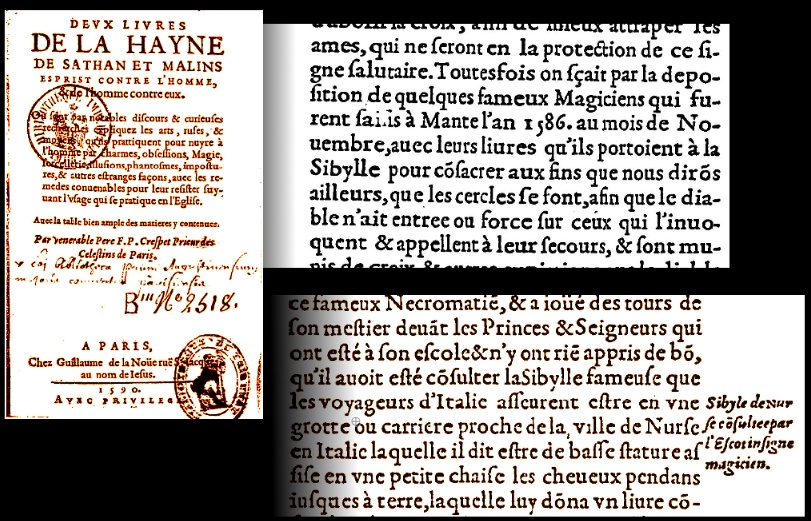 DEVX LIVRES
DE LA HAYNE
DE SATHAN ET MALINS
ESPRIST CONTRE L'HOMME,
& de l'homme contre eux.
Où sont par notables discours & curieuses
recherches expliquez les arts, ruses, &
moyens, qu'ils pratiquent pour nuyre à
l'homme par charmes, obsessions, Magie,
sorcellerie, illusions, phantosmes, impostu-
res, & autres estranges façons, auec les re-
medes conuenables pour leur resister suy-
uant l'vsage qui se pratique en l'Eglise.
Auec la table bien ample des matieres y contenues.
Par venerable Pere F. P. Crespet Prieur des
Celestins de Paris.
Bm No 2518.
A PARIS,
Chez Guillaume de la Noüe ruë S. Iacques
au nom de Iesus.
1590.
AVEC PRIVILEGE
d'abolir la croix, afin de mieux attraper les
ames, qui ne seront en la protection de ce si-
gne salutaire. Toutesfois on sçait par la depo-
sition de quelques fameux Magiciens qui fu-
rent saisis à Mante l'an 1586. au mois de No-
uembre, auec leurs liures qu'ils portoient à la
Sibylle pour cōsacrer aux fins que nous dirōs
ailleurs, que les cercles se font, afin que le dia-
ble n'ait entree ou force sur ceux qui l'inuo-
quent & appellent à leur secours, & sont mu-
nis de croix &
ce fameux Necromatiē, & a ioüé des tours de
son mestier deuāt les Princes & Seigneurs qui
ont esté à son escole & n'y ont riē appris de bō,
qu'il auoit esté cōsulter la Sibylle fameuse que
les voyageurs d'Italie asseurent estre en vne
grotte ou carriere proche de la ville de Nurse
en Italie laquelle il dit estre de basse stature as
sise en vne petite chaise les cheueux pendans
iusques à terre, laquelle luy dōna vn liure cō-
Sibyle de nur
se cōsultee par
l'Escot insigne
magicien.